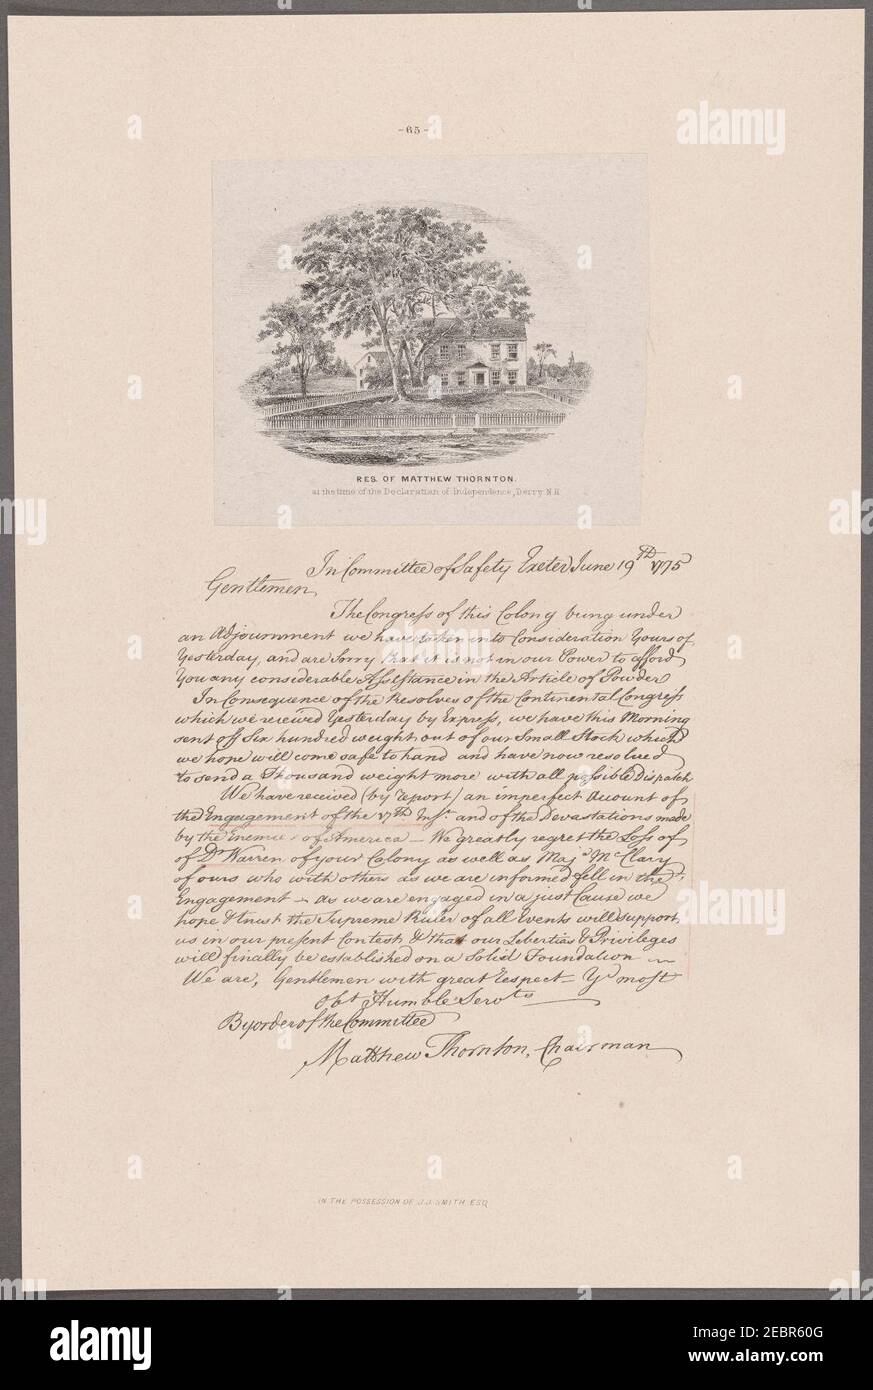 -65-
RES. OF MATTHEW THORNTON.
at the time of the Declaration of Independence, Derry N.H.
In Committee of Safety Exeter June 19th 1775
Gentlemen
The Congress of this Colony being under
an Adjournment we have taken into Consideration Yours of
Yesterday, and are Sorry that it is not in our Power to afford
You any considerable Assistance in the Article of Powder
In Consequence of the Resolves of the Continental Congress
which we received Yesterday by Express, we have this Morning
sent off Six hundred weight out of our Small Stock which
we hope will come safe to hand and have now resolved
to send a Thousand weight more with all possible Dispatch
We have received (by report) an imperfect Account of
the Engagement of the 17th Inst. and of the Devastations made
by the Enemies of America — We greatly regret the Loss of
of Dr Warren of your Colony as well as Majr McClary
of ours who with others as we are informed fell in the
Engagement — as we are engaged in a just Cause we
hope & trust the Supreme Ruler of all Events will support
us in our present Contest & that our Liberties & Privileges
will finally be established on a Solid Foundation —
We are, Gentlemen with great Respect — Yr most
Obt Humble Servts
By order of the Committee
Matthew Thornton, Chairman
IN THE POSSESSION OF J.J. SMITH ESQ
alamy
a
alamy
Image ID: 2EBR60G
www.alamy.com